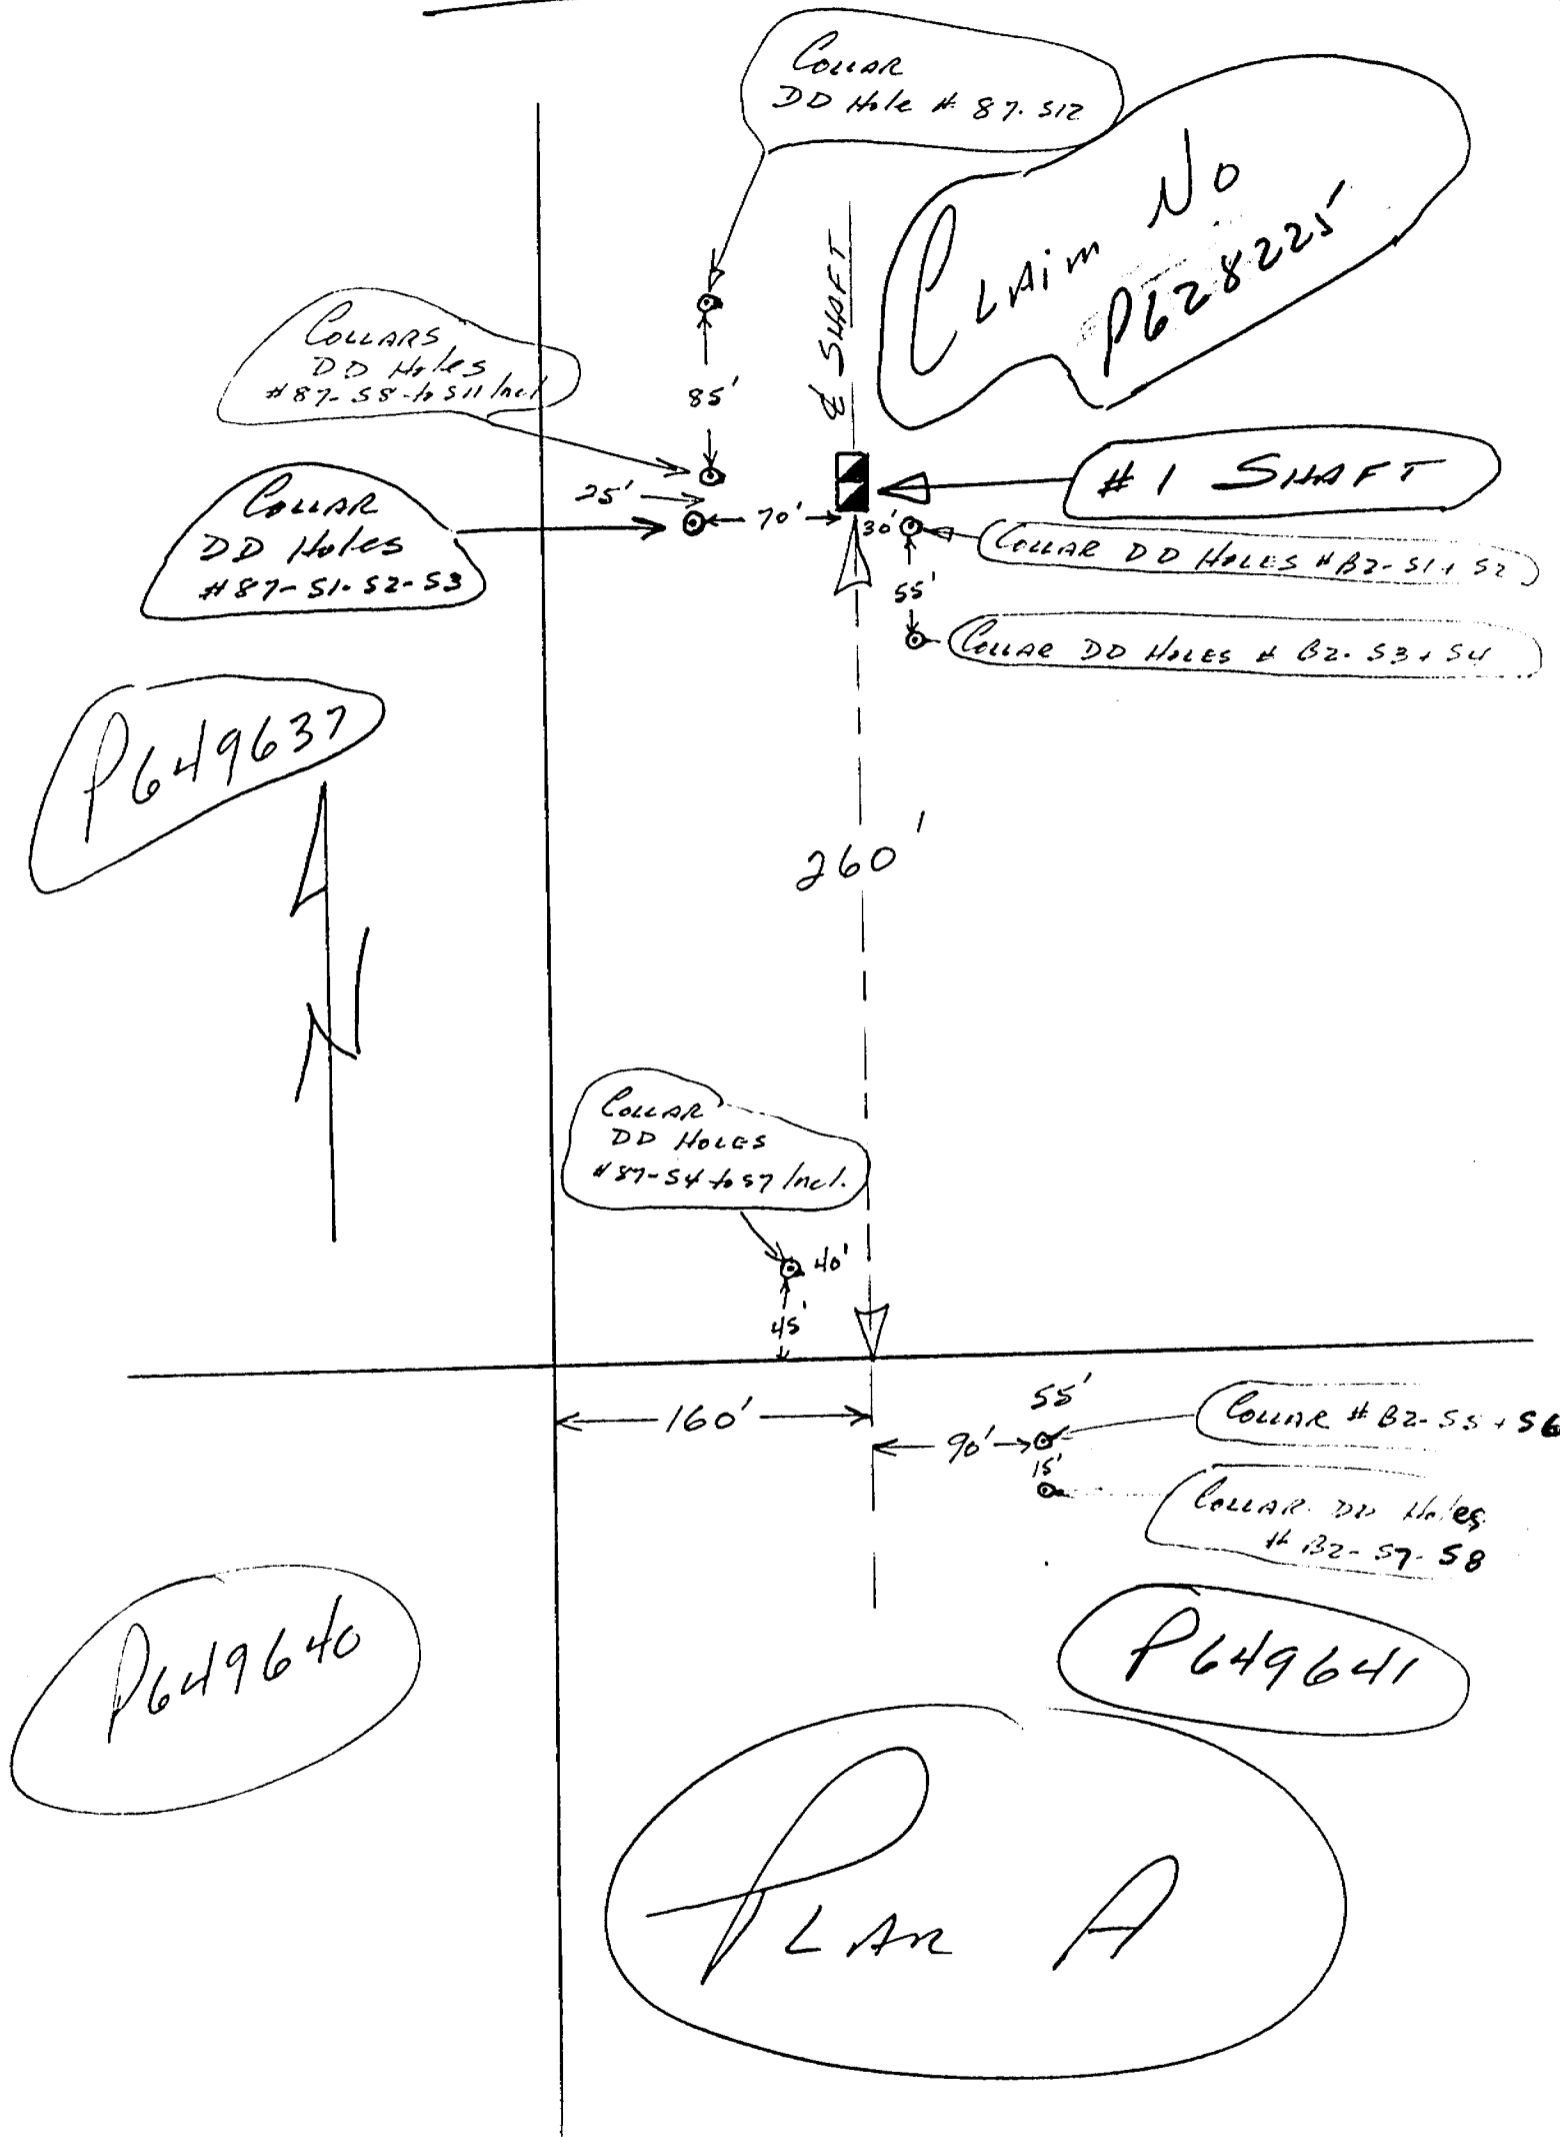 COLLAR
DD Hole # 87-S12
CLAIM No
P628225
℄ SHAFT
COLLARS
DD Holes
#87-S8-to S11 Incl
85'
#1 SHAFT
25'
COLLAR
DD Holes
#87-S1-S2-S3
70'
30'
COLLAR DD HOLES # B2-S1+S2
55'
COLLAR DD HOLES # B2-S3+S4
P649637
260'
N
COLLAR
DD HOLES
#87-S4 to S7 Incl.
40'
45'
160'
55'
COLLAR # B2-S5+S6
90'
15'
COLLAR DD Holes
# B2-S7-S8
P649640
P649641
PLAN A